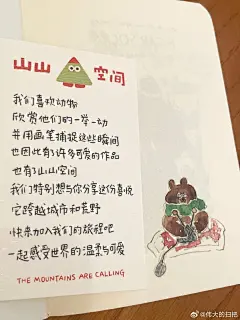 山山空间
我们喜欢动物
欣赏他们的一举一动
并用画笔捕捉这些瞬间
也因此有许多可爱的作品
也有了山山空间
我们特别想与你分享这份喜悦
它跨越城市和荒野
快来加入我们的旅程吧
一起感受世界的温柔与可爱
THE MOUNTAINS ARE CALLING
@伟大的日把